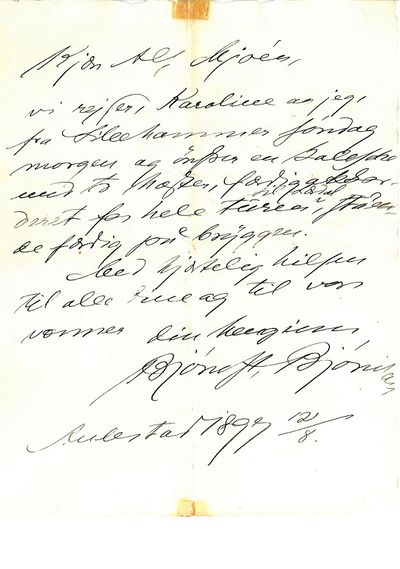 Kjære Alf Mjøen,
vi rejser, Karoline og jeg,
fra Lillehammer søndag
morgen og ønsker en Kalesche
med to hæster, færdig
til Lærdal
for hele turen,
de færdig på bryggen.
Med hjærtelig hilsen
til alle og til vore
venner din hengivne
Bjørnst. Bjørnson
Aulestad 1897 12/8.